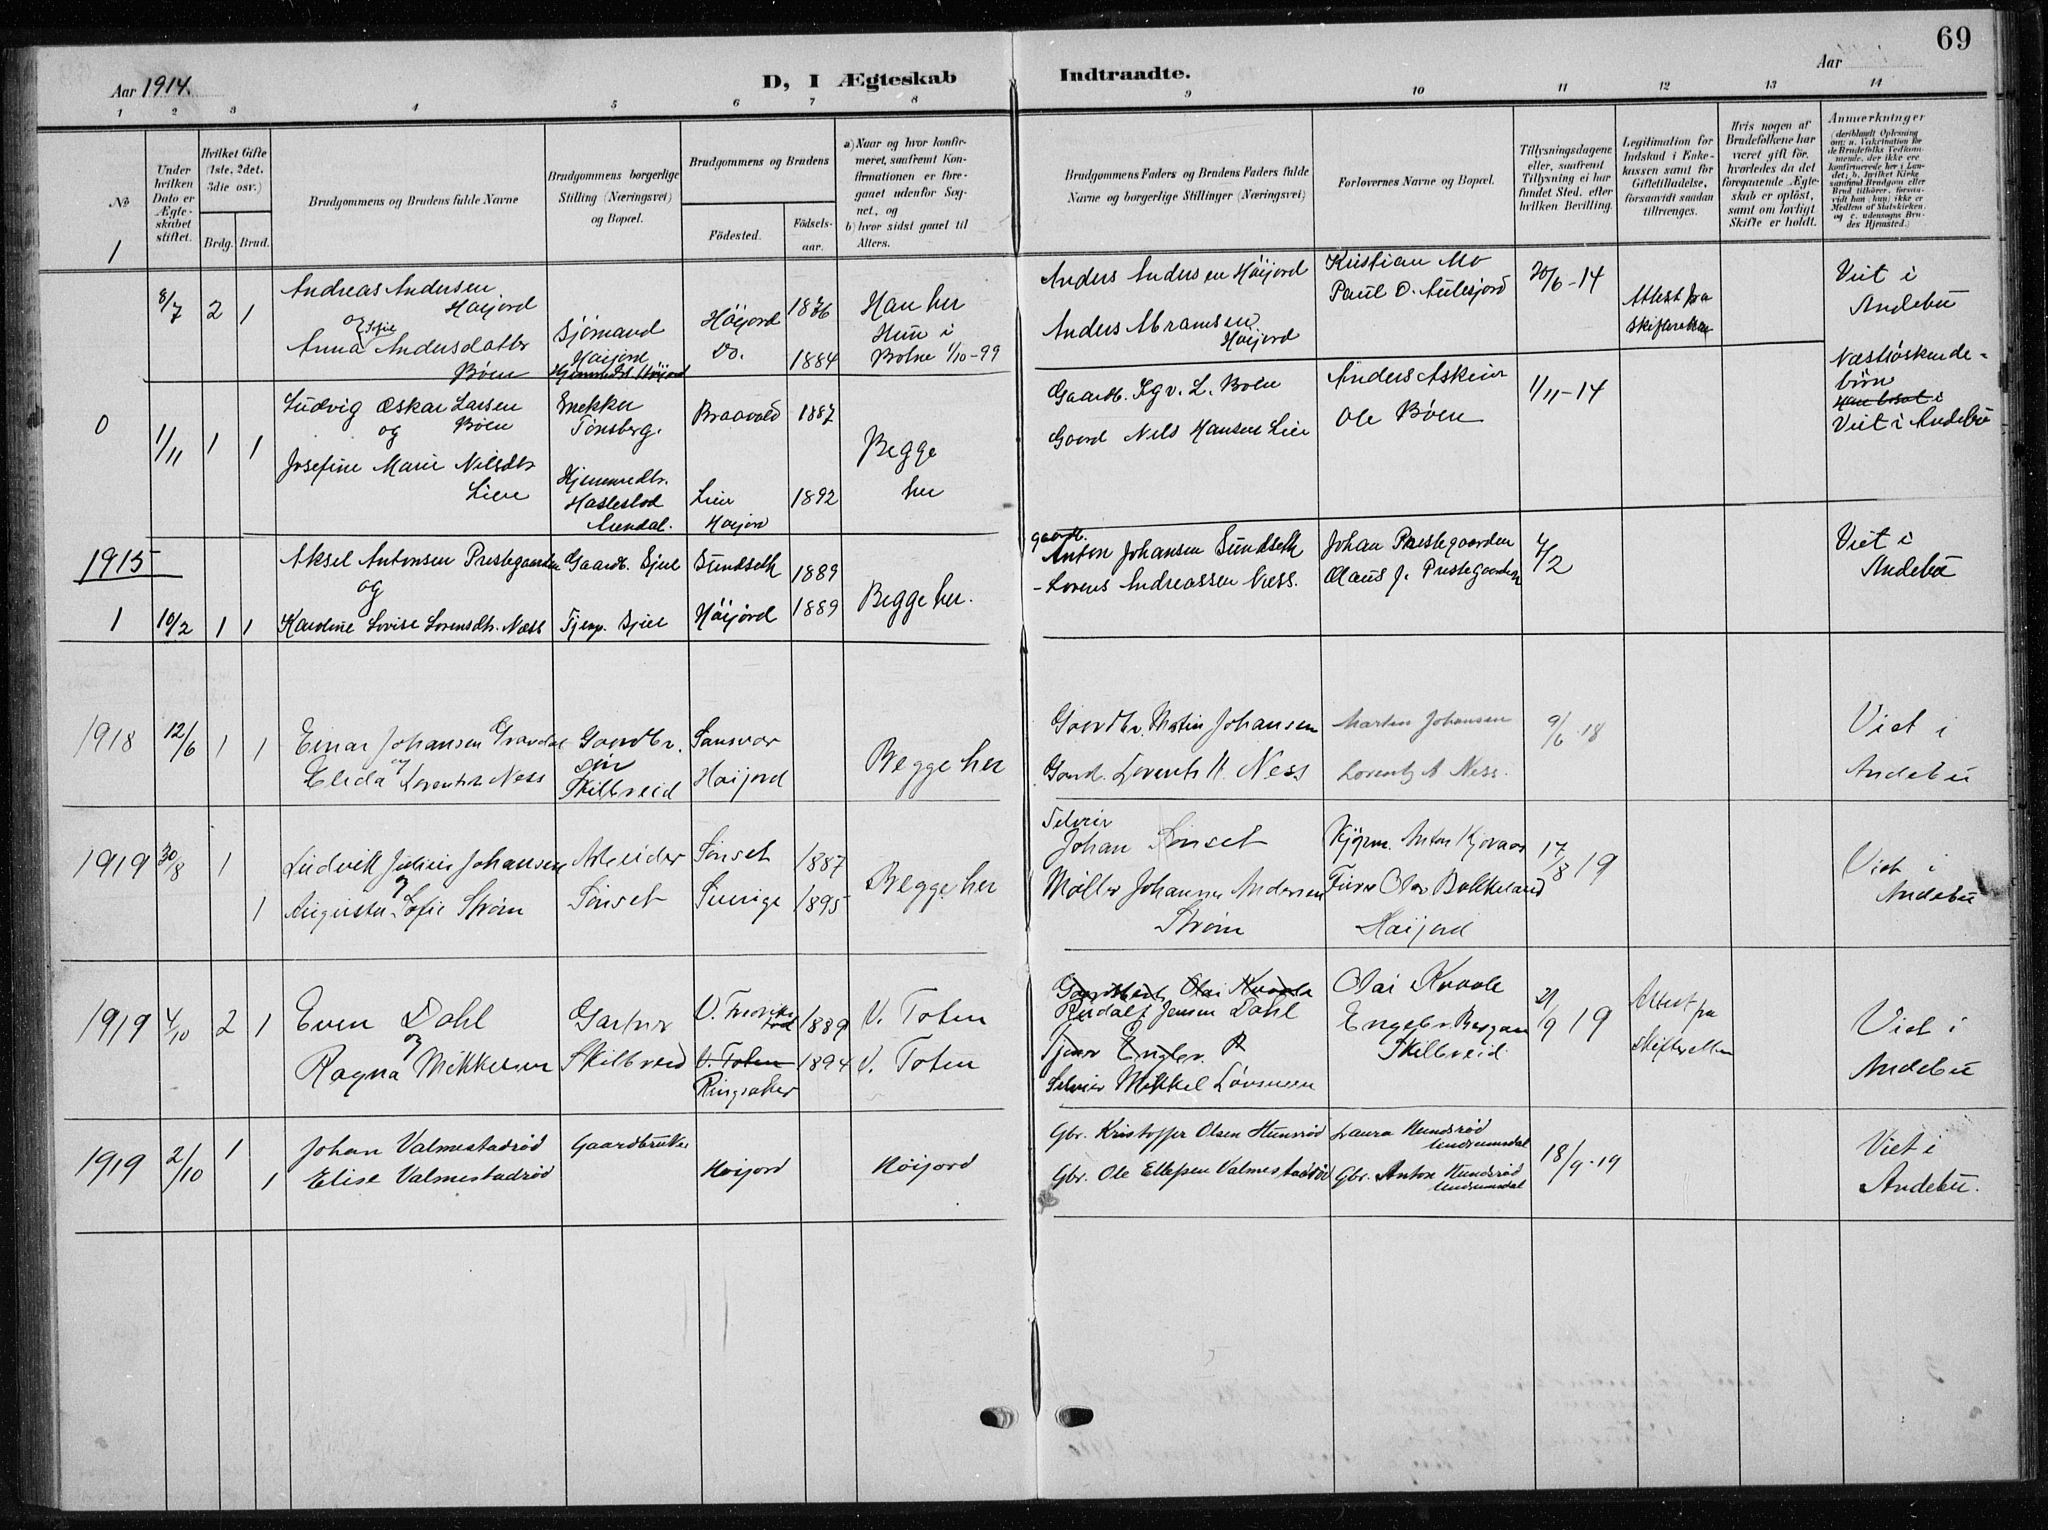 69
Aar 1914.
D, I Ægteskab Indtraadte.
Aar
1 2 3 4 5 6 7 8 9 10 11 12 13 14
№
Under hvilken Dato er Ægteskabet stiftet.
Hvilket Gifte (1ste, 2det, 3die osv.)
Brdg. Brud.
Brudgommens og Brudens fulde Navne
Brudgommens borgerlige Stilling (Næringsvei) og Bopæl.
Brudgommens og Brudens
Fødested. Fødselsaar.
a) Naar og hvor konfirmeret, saafremt Konfirmationen er foregaaet udenfor Sognet, og
b) hvor sidst gaaet til Alters.
Brudgommens Faders og Brudens Faders fulde Navne og borgerlige Stillinger (Næringsvei)
Forlovernes Navne og Bopæl.
Tillysningsdagene eller, saafremt Tillysning ei har fundet Sted, efter hvilken Bevilling.
Legitimation for Indskud i Enkekassen samt for Giftetilladelse, forsaavidt saadan tiltrænges.
Hvis nogen af Brudefolkene har været gift før, hvorledes da det foregaaende Ægteskab er opløst, samt om lovligt Skifte er holdt.
Anmærkninger
1
8/7 2 1
Andreas Andersen
Høijord
og Sofie
Anna Andersdatter
Bøen
Sjømand
Høijord
Hjemmedt. Høijord
Høijord 1876
Do. 1884
Han her
Hun i
Botne 1/10-99
Anders Andersen Høijord
Anders Abramsen
Høijord
Kristian Mo
Paul O. Aulesjord
20/6-14
Attest fra
skifteretten
Viet i
Andebu
0 1/11 1 1
Ludvig Oskar Larsen
og Bøen
Josefine Marie Nilsdtr
Lien
Snekker
Tønsberg.
Hjemmedtr.
Haslestad
Arendal.
Braavold 1887
Lien 1892
Høijord
Begge
her
Gaardb. L. Bøen
Gaard Nils Hansen Lien
Anders Askjer
Ole Bøen
1/11-14
Næstsøskende-
børn
Viet i Andebu
1915
1 10/2 1 1
Aksel Antonsen Prestegaarden
og
Karoline Lovise Lorensdtr. Næss
Gaardb. Gjeie
Tjenp. Gjeie
Sundseth 1889
Høijord 1889
Begge her.
gaardb.
Anton Johansen Sundseth
- Lorens Andreassen Næss.
Johan Prestegaarden
Olaus J. Prestegaarden
7/2
Viet i
Andebu
1918 12/6 1 1
Einar Johansen Gravdal
og
Elida Lorentsdtr Ness
Gaardbr.
søn
Skilbreid
Sansvær
Høijord
Begge her
Gaardbr. Martin Johansen
Gaard. Lorents A. Ness
Martin Johansen
Lorentz A Ness.
9/6-18
Viet i
Andebu
1919 30/8 1
1
Ludvik Julius Johansen
og
Augusta Sofie Strøm
Arbeider
Sønset
Sønset 1887
Sverige 1895
Begge her
Selveier
Johan Sønset
Møller Johannes Andersen
Strøm
Kjøpm. Anton Kjøraas
Furer Olav Bakkeland
Høijord
17/8 19
Viet i
Andebu
1919 4/10 2 1
Even Dahl
og
Ragna Mikkelsen
Gartner
Skilbreid
V. Fredriks
rød 1889
V. Toten 1894
Ringsaker
V. Toten
V. Toten
Gaardbruk. Olai Kvaale
Rudolf Jensen Dahl
Selveier Mikkel Lövensen
Olai Kvaale
Engebr. Bergan
Skilbreid.
21/9 19
Attest fra
skifteretten
Viet i
Andebu
1919 2/10 1
1
Johan Valmestadrød
Elise Valmestadrød
Gaardbruker
Høijord
Høijord
Gbr. Kristoffer Olsen Hunsrød
Gbr. Ole Ellefsen Valmestadrød
Laura Hundsrød
Undrumsdal
Gbr. Anton Hundsrød
Undrumsdal
18/9-19
Viet i
Andebu.